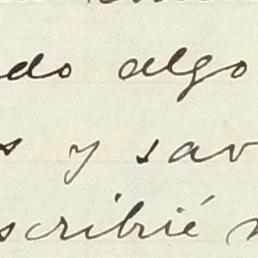 do algo
s y sav
scribié